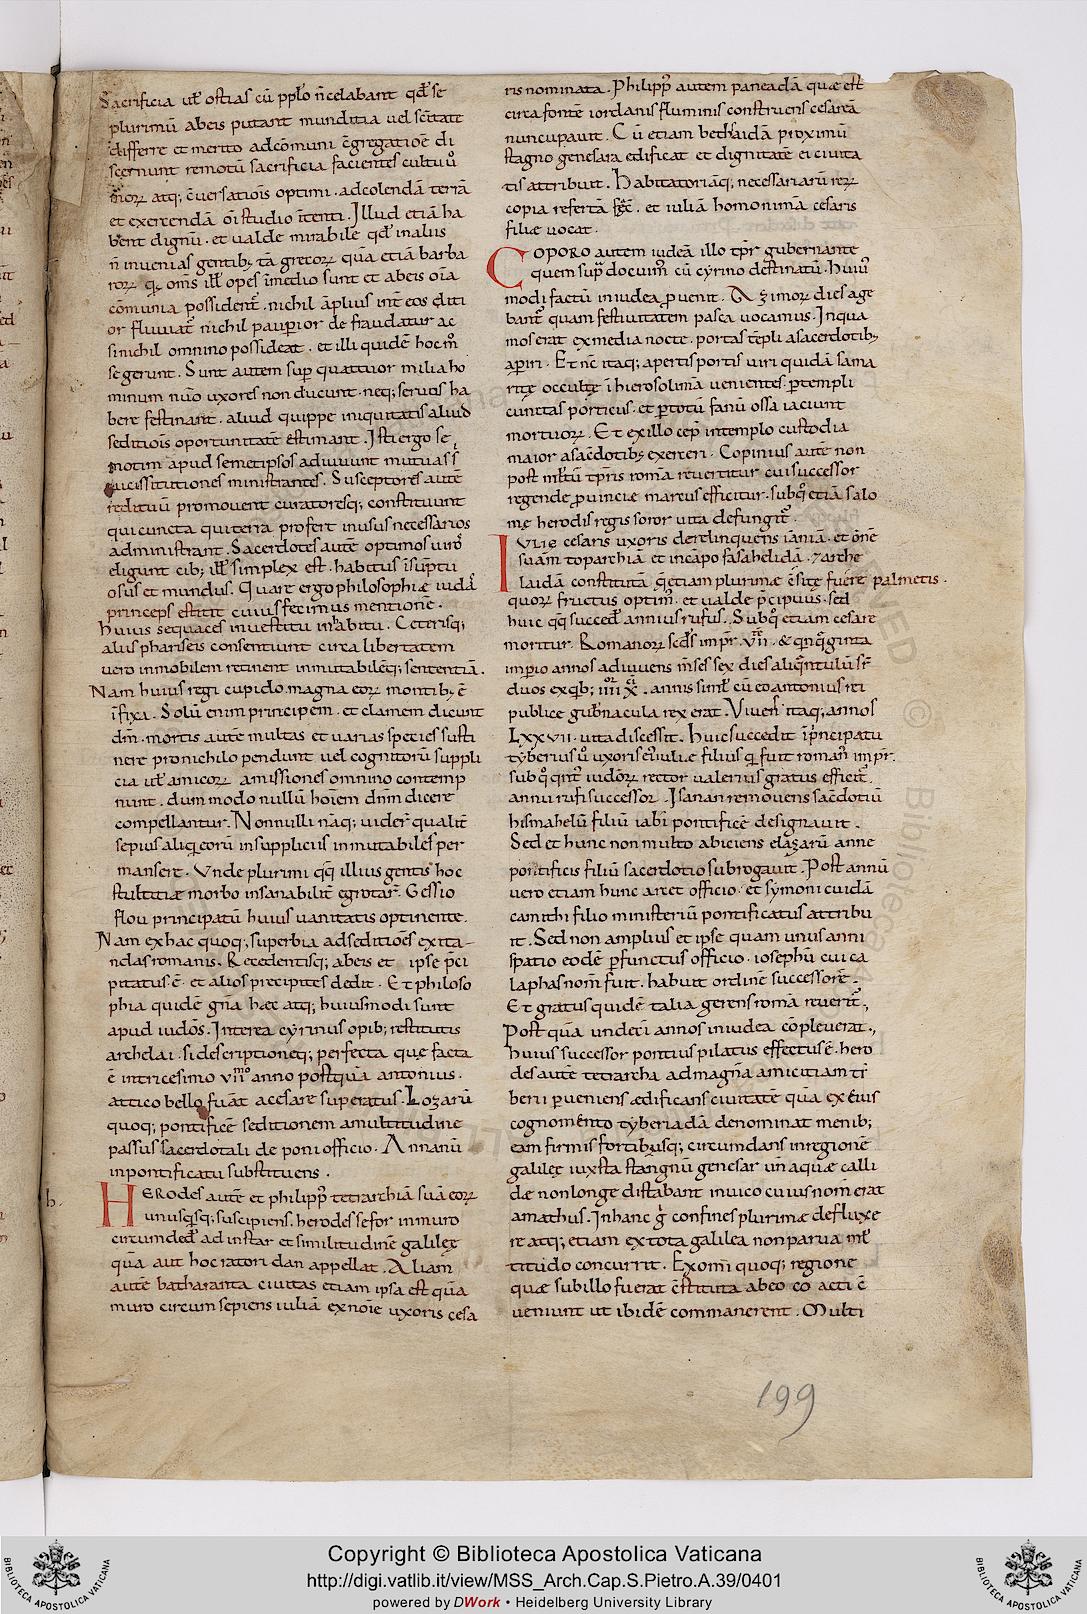 Sacrificia ul̄ ostias cū pplo n̄celabant qd̄ se
plurimū abeis putant munditia uel sc̄itate
differre et merito adcōmuni c̄gregatioē di
scernunt remotū sacrificia facientes cultuū
morꝝ atq; c̄uersatiōis optimi . adcolendā terrā
et exercendā oī studio ītenti . Illud etiā ha
bent dignū . et ualde mirabile qd̄ inaliis
n̄ inuenias gentib; tā grecorꝝ quā etiā barba
rorꝝ oēs ill̄ opes īmedio sunt et abeis oīa
cōmunia possident̄ . nichil āplius int̄ eos diti
or fluuiat̄ nichil paup̄ior de fraudatur ac
sinichil omnino possideat . et illi quidē hoc m̊
se gerunt . Sunt autem sup̄ quattuor milia ho
minum nūo uxores non ducunt . neq; seruos ha
bere festinant . aliud quippe iniquitatis aliud
seditiōis oportunitatē ēstimant . Isti ergo se
motim apud semetipsos adiuuunt mutuas s̄
uicissitutiones ministrantes . Susceptores autē
redituū promouent curatoresq; constituunt
qui cuncta qui terra profert inusus necessarios
administrant . Sacerdotes autē optimos uiro̊
eligunt cib; ill̄ simplex est . habitus īsūptu
osus et mundus . Quare ergo philosophiæ iudā
princeps estitit cuius fecimus mentionē .
huius sequaces inuestitu inhabitu . Ceterisq;
aliis phariseis consentiunt circa libertatem
uero inmobilem retinent inmutabilēq; sententiā .
Nam huius regi cupido magna eorꝝ montib; ē
īfixa . Solū enim principem . et clamem dicunt
dm̄ . mortis autē multas et uarias species susti
nere pro nichilo pendunt uel cognitorū suppli
cia ul̄ amicorꝝ amissiones omnino contemp
nunt . dum modo nullū hoīem dn̄m dicere
compellantur . Nonnulli nāq; uider̄ qualit̄
sepius aliq̄ eorū insuppliciis inmutabiles per
mansere . Vnde plurimi q̄q̄ illius gentis hoc
stultitiæ morbo insanabilit̄ egrotar̄ . Gessio
flou principatū huius uanitatis optinente .
Nam exhac quoq; superbia adseditiōes exita-
ndas romanis . Recedentisq; abeis et ipse p̄ci
pitatus ē . et alios precipites dedit . Et philoso
phia quidē gn̄a hæc atq; huiusmodi sunt
apud iudōs . Interea cyrinus opib; restitutis
archelai . si descriptioneq; perfecta que facta
ē intricesimo vii̊ anno postquā antonius .
attico bello fuāt acesare superatus . Lozarū
quoq; pontificē seditionem amultitudine
passus sacerdotali de poni officio . Annanū
inpontificatu substituens .
h.
HERODES autē et philipp̄ tetrarchiā suā eorꝝ
unusq̄sq; suscipiens . herodes sefor inmuro
circumded̄ ad instar et similitudinē galileę
quā aut hoc ratori dan appellat . Aliam
autē batharanta ciuitas etiam ipsa est quā
muro circum sepiens iuliā exnoīe uxoris cesa
ris nominata . Philipp̄ autem paneadā quæ est
circa fontē iordanis fluminis construens cesareā
nuncupauit . Cū etiam bethsaidā proximū
stagno genesara edificat et dignitatē ei ciuita
tis attribuit . Habitatoriāq; necessariarū rerꝝ
copia refertā . et iuliā homonimā cesaris
filiæ uocat .
COPORO autem iudeā illo tp̄r gubernante
quem sup̄ docuim̄ cū cyrino destinatū . huiū
modi factū iniudea puenit . Azimorꝝ dies age
bant̄ quam festiuitatem pasca uocamus . Inqua
mos erat exmedia nocte . portas tēpli asacerdotib;
aperiri . Et n̄c itaq; apertis portis uiri quidā sama
ritę occultę ī hierosolimā uenientes . ptempli
cunctas porticus . et ptotū fanū ossa iaciunt
mortuorꝝ . Et exillo cep̄ intemplo custodia
maior asacdotib; exerceri . Copinius autē non
post ml̄tū tp̄ris romā reuertitur cui successor
regende puincie marcus efficitur . subq̊ etiā salo
mę herodis regis soror uita defungit̄ .
IULIE cesaris uxoris derelinquens iāniā . et ōnē
suam toparchiā et incāpo fasahelidā . 7 arche
laidā constitutā q̄ etiam plurimæ c̄site fuere palmetis .
quorꝝ fructus optim̄ . et ualde p̄cipuus . sed
huic q̄q̄ succed̄ annius rufus . Subq̊ etiam cesare
moritur . Romanorꝝ sc̄ds imp̄r . VII . & qn̄q̄ginta
imperio annos adiuuens m̄ses sex dies aliq̄ntulū sr̄
duos exqib; iiii x . annis siml̄ cū eo antonius rei
publice gub̄nacula rexerat . Viuens itaq; annos
LXXVII . uita discessit . Huic succedit īprincipatu
tyberius ū uxoris ei̊ iuliæ filius q̄ fuit roman̄ imp̄r .
subq̊ qnt̊ iudorꝝ rector ualerius gratus efficit̄
annii rufi successor . Isanan remouens sac̄dotiū
hismahelū filiū iabi pontificē designauit .
Sed et hunc non multo abiciens elazarū anne
pontificis filiū sacerdotio subrogauit . Post annū
uero etiam hunc arcet officio . et symoni cuidā
camithi filio ministeriū pontificatus attribu
it . Sed non amplius et ipse quam unus anni
spatio eodē pfunctus officio . iosephū cui ca
iaphas nom̄ fuit . habuit ordinē successorē .
Et gratus quidē talia gerens romā reuerit̄ .
Post quā undeci annos iniudea cōpleuerat .
huius successor pontius pilatus effectus ē . hero
des autē tetrarcha admagnā amicitiam ti
berii perueniens ædificans ciuitatē quā ex eius
cognomento tyberiadā denominat menib;
eam firmis fortibusq; circumdans inregionē
galileę iuxsta stangnū genesar un̄ aquæ calli
dæ nonlonge distabant inuico cuius nom̄ erat
amathus . Inhanc ḡ confines plurimæ defluxe
re atq; etiam extota galilea non parua ml̄
titudo concurrit . Exomi quoq; regione
quæ subillo fuerat c̄stituta abeo coacti ē
ueniunt ut ibidē commanerent . Multi
199
Copyright © Biblioteca Apostolica Vaticana
http://digi.vatlib.it/view/MSS_Arch.Cap.S.Pietro.A.39/0401
powered by DWork • Heidelberg University Library